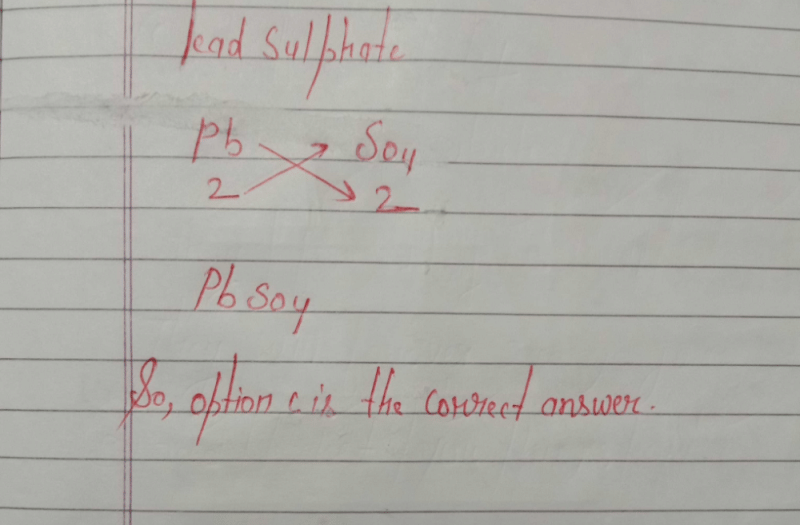 lead sulphate
Pb So4
2 2
Pb So4
So, option c is the correct answer.